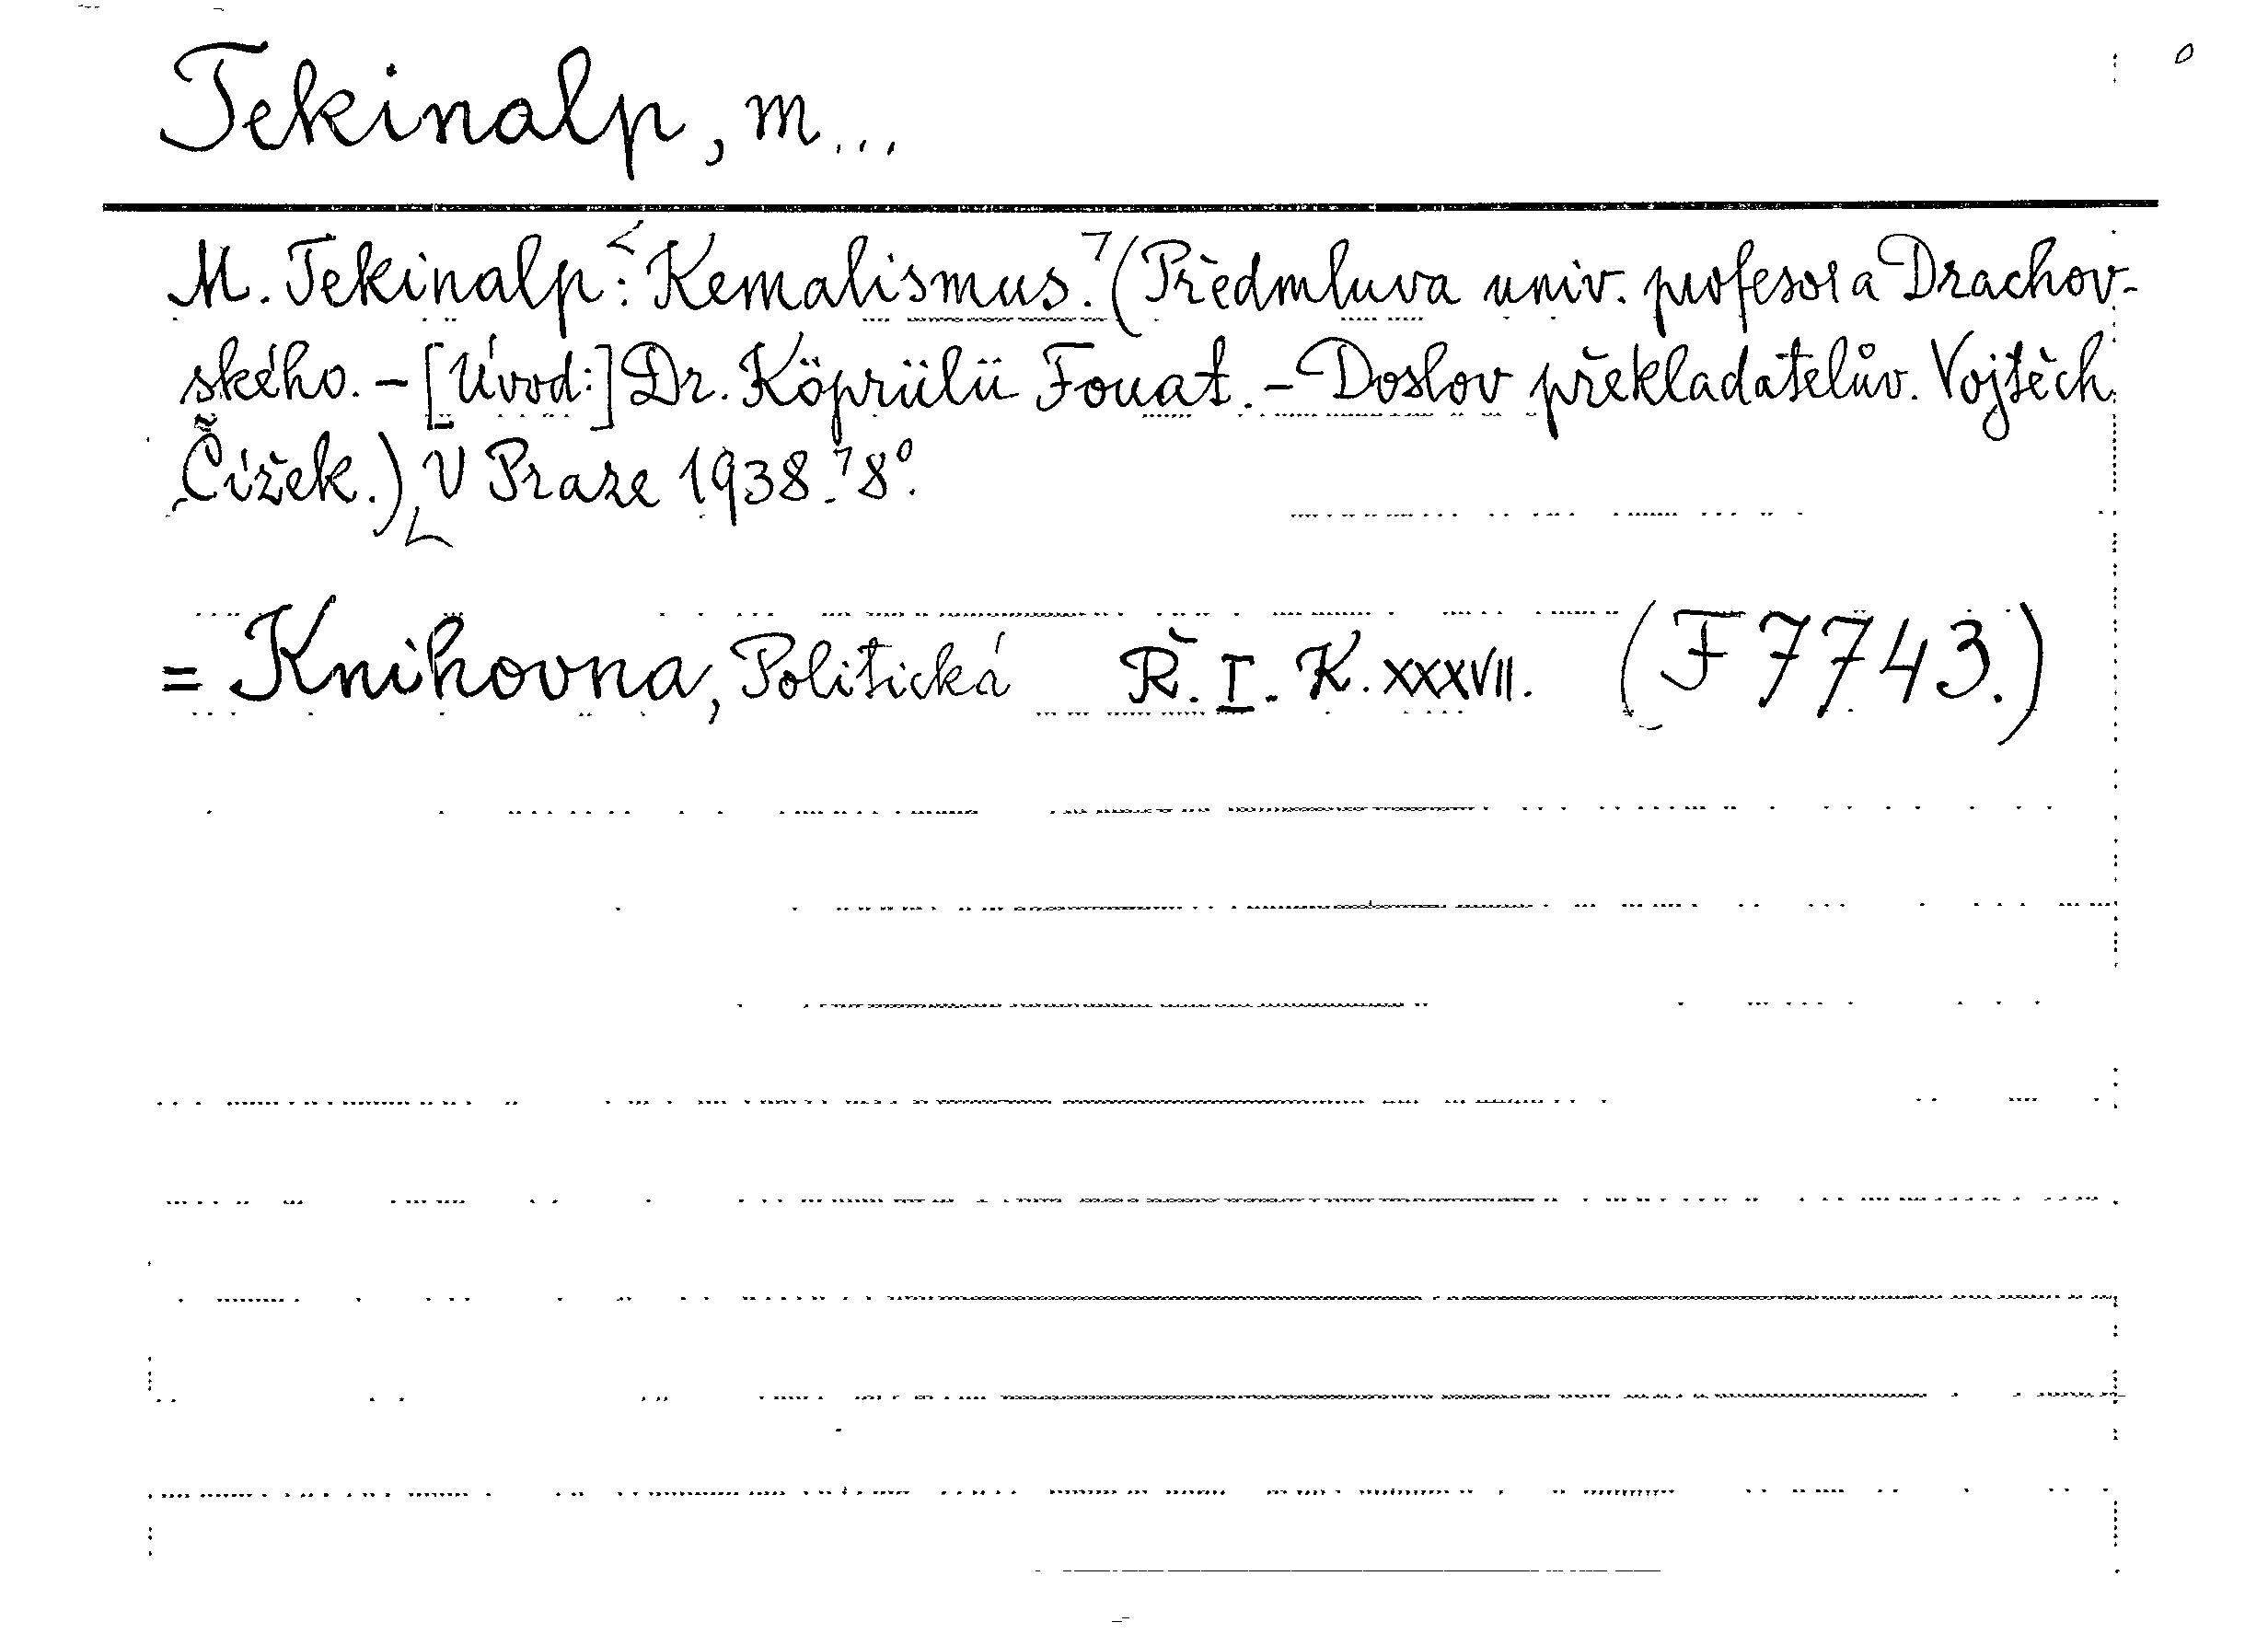 Tekinalp, M...
M. Tekinalp: Kemalismus. (Předmluva univ. profesora Drachov-
ského. – [Úvod:] Dr. Köprülü Fouat. – Doslov překladatelův. Vojtěch
Čížek.) V Praze 1938. 8°.
= Knihovna, Politická Ř. I. K. XXXVII. (F 7743.)